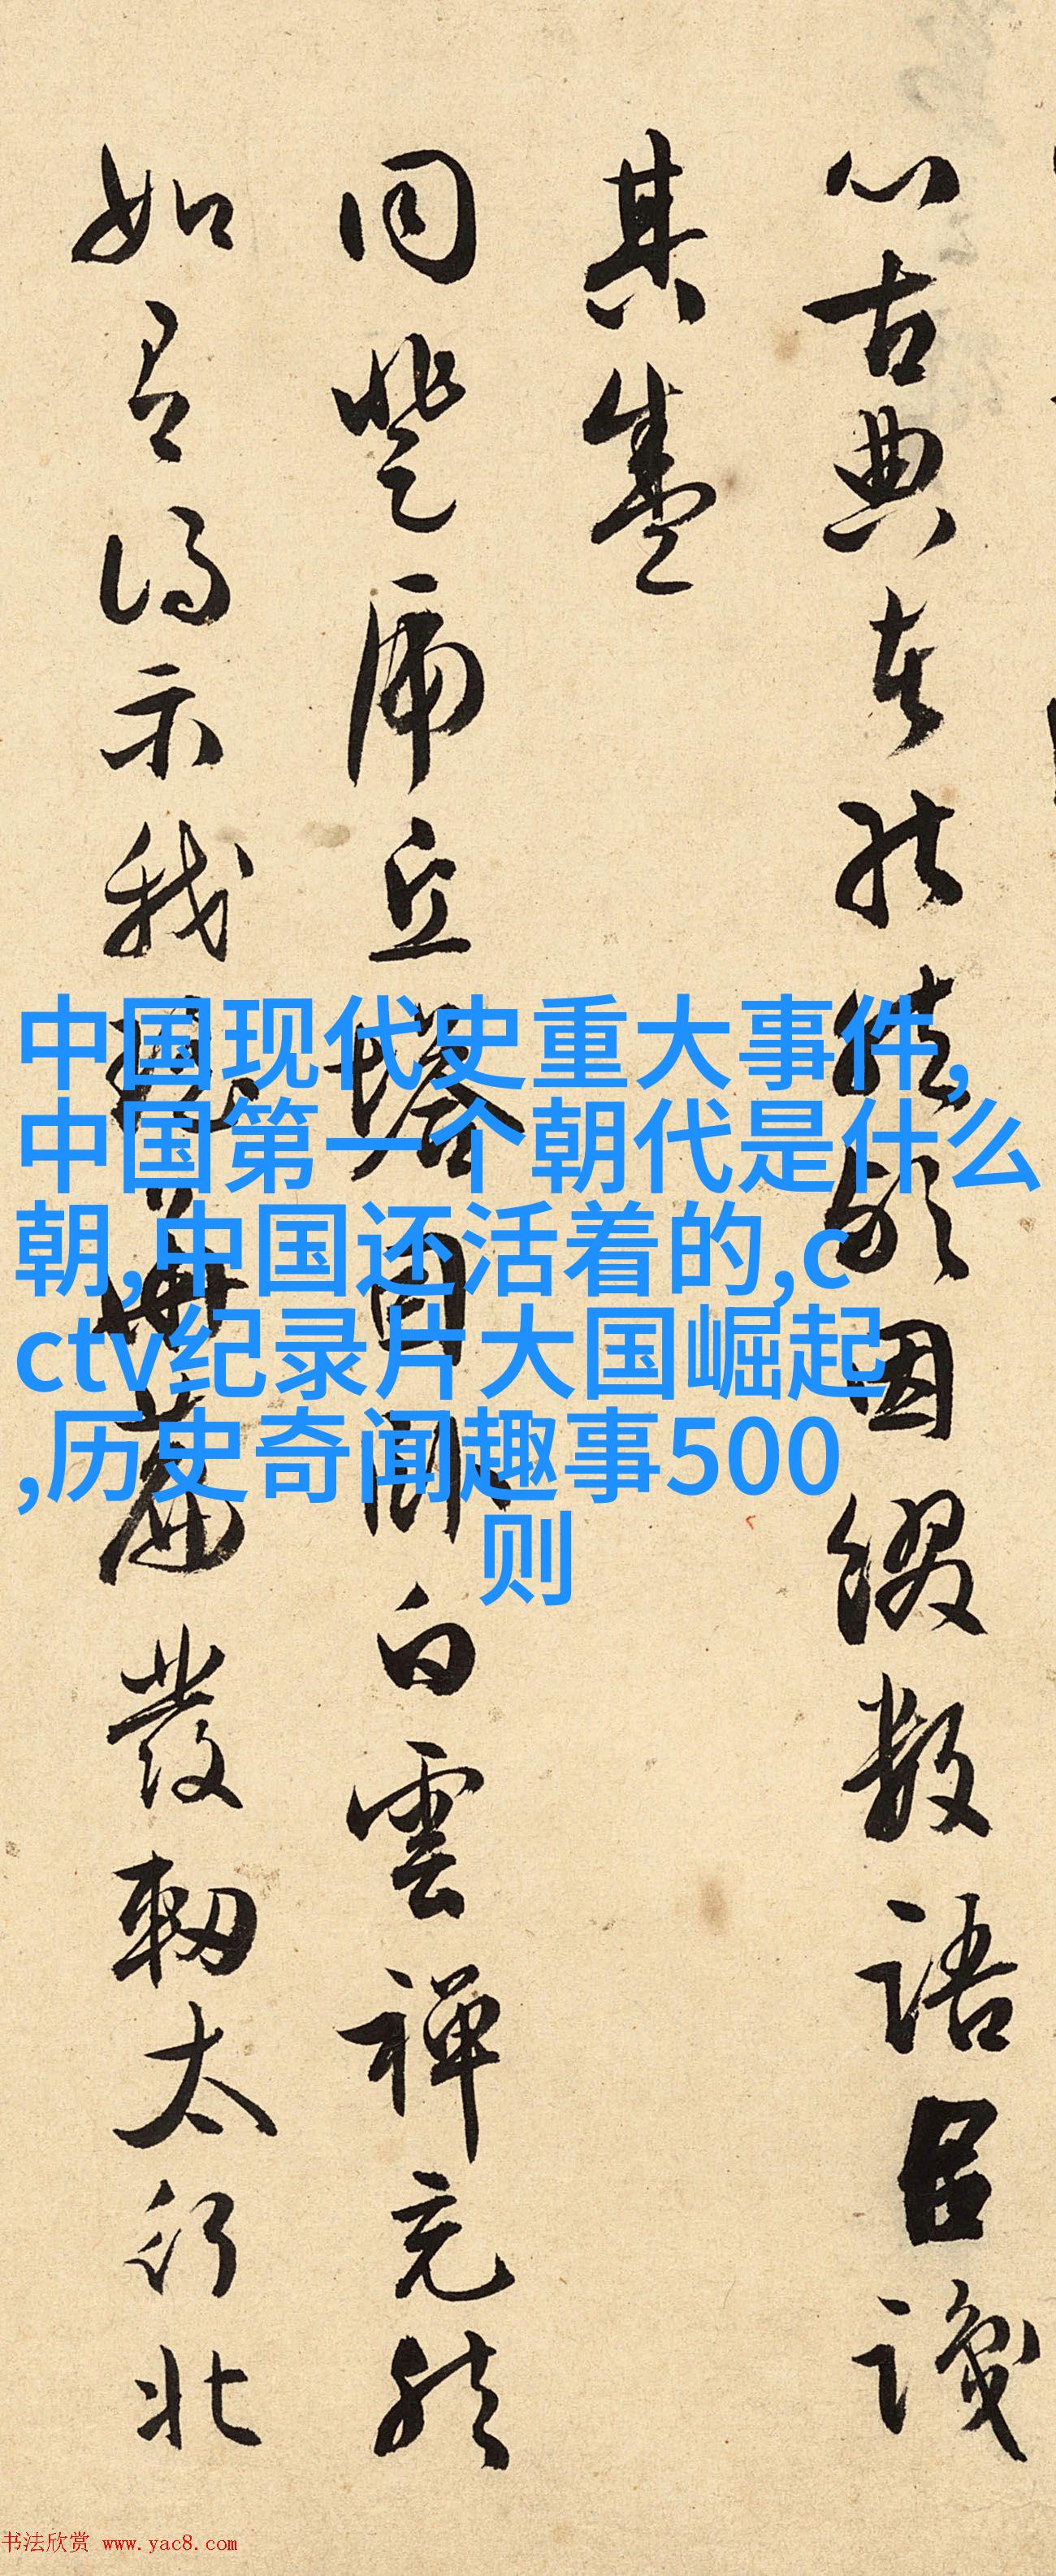 古典因綴數語㠯識
其盛
同登虎丘塔白雲禪充然
如有得示我發軔太行北
中国现代史重大事件,
中国第一个朝代是什么
朝,中国还活着的,c
ctv纪录片大国崛起
,历史奇闻趣事500
则
书法欣赏 www.yac8.com